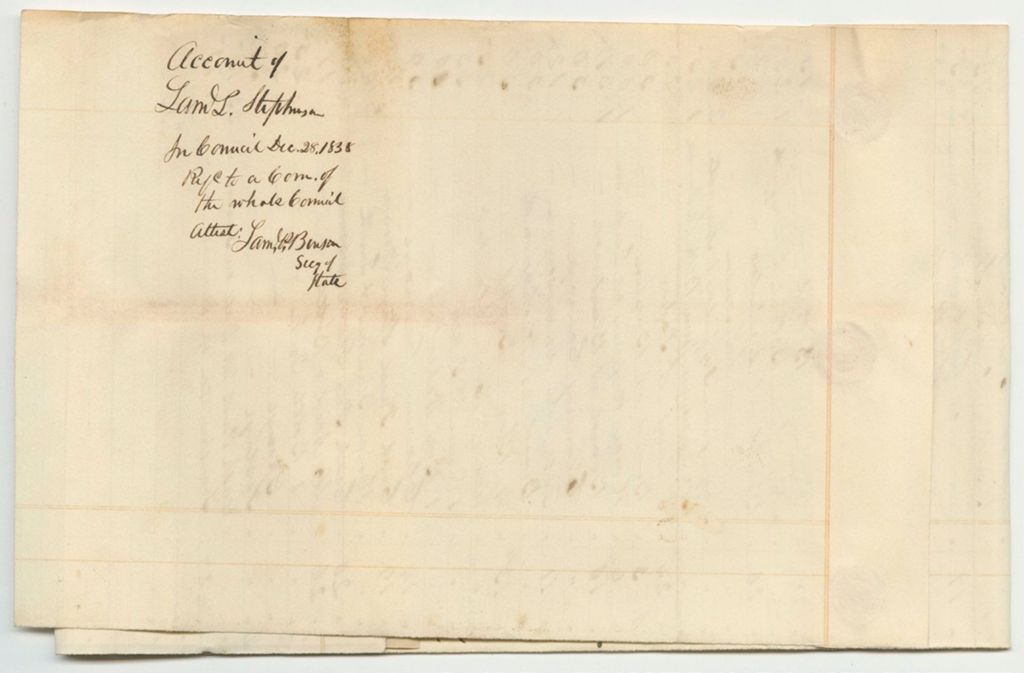 Account of
Saml L. Stephenson
In Council Dec. 28, 1838
Refd to a Com. of
the whole Council
Attest: Saml P. Benson
Secy of
State